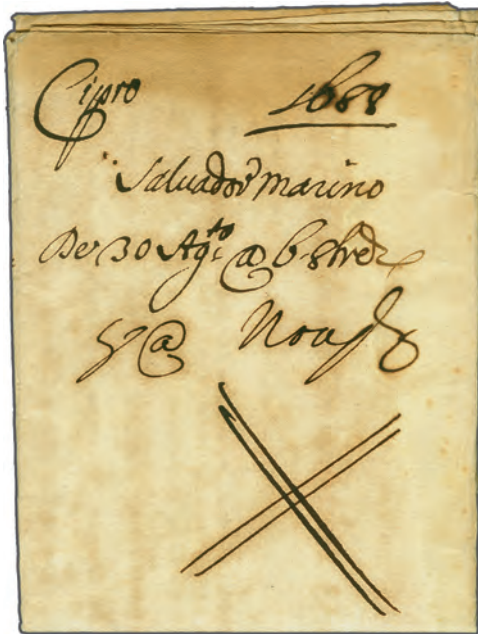 Cipro 1688
Saluador Marino
De 30 Ag.to @ 6 8bre
@